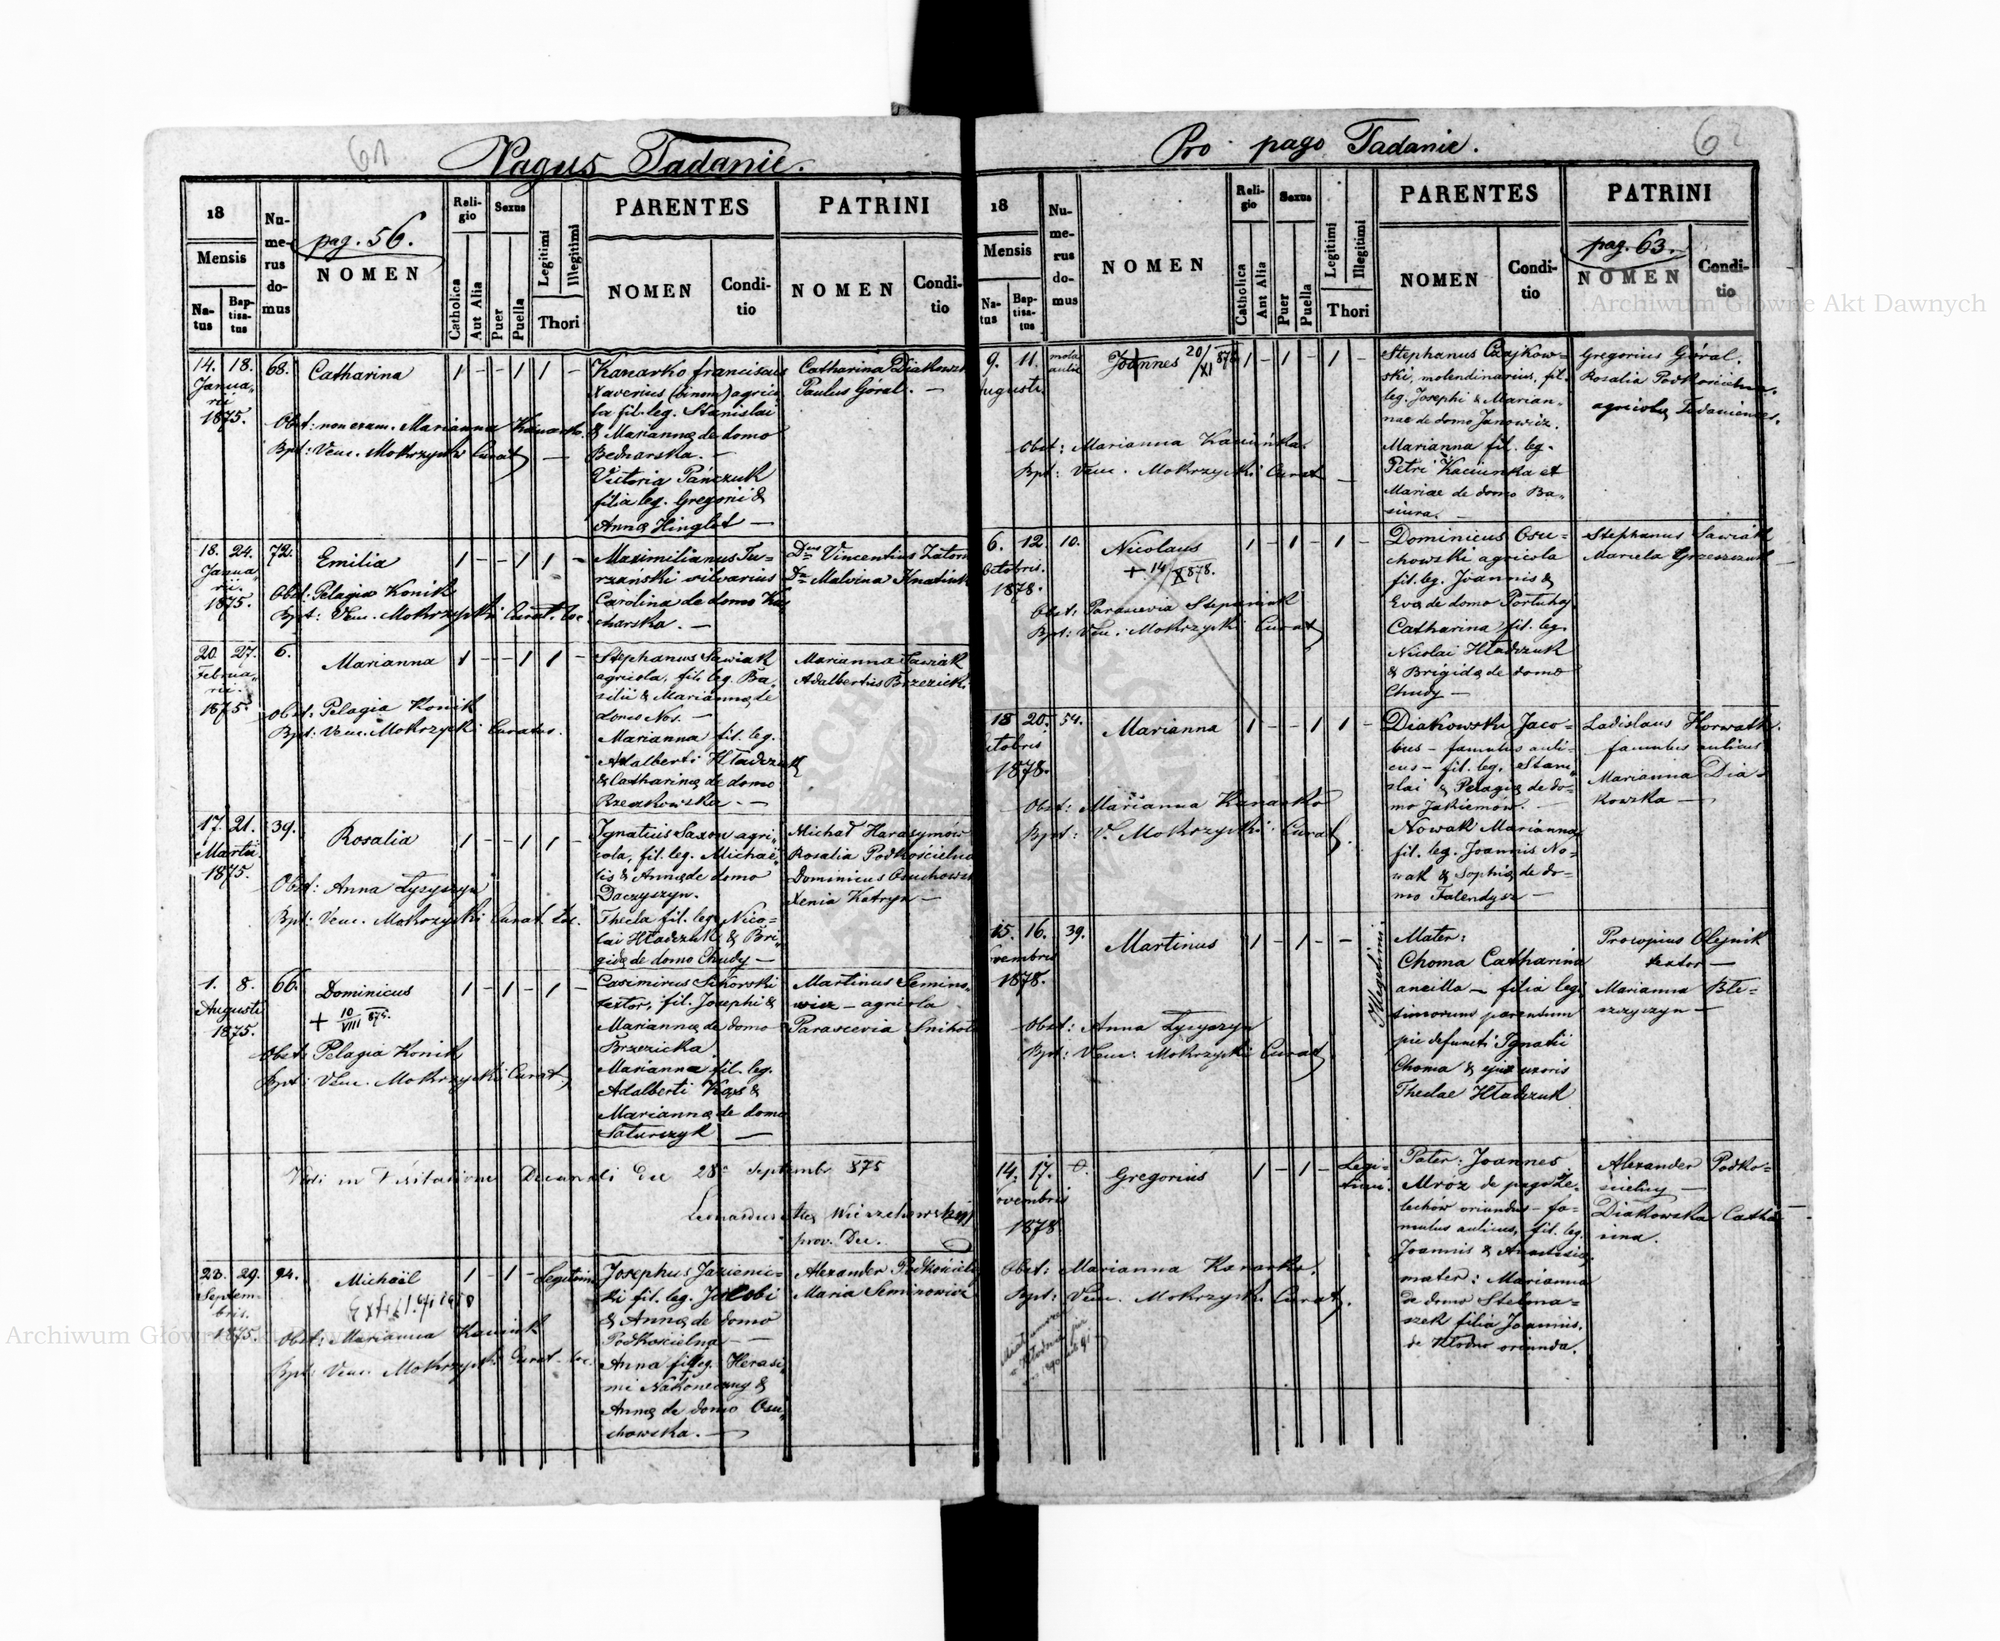 61
Pagus Tadanie.
18
Mensis
Natus
Baptisatus
Numerus domus
pag. 56.
NOMEN
Religio
Catholica
Aut Alia
Sexus
Puer
Puella
Legitimi
Illegitimi
Thori
PARENTES
NOMEN
Conditio
PATRINI
NOMEN
Conditio
14. 18. Januarii 1875.
68.
Catharina
1 - - 1 1 -
Obst: non exam. Marianna Kanarko
Bpt: Ven. Mokrzycki Curat
Kanarko franciscus
Xaverius (binom) agrico-
la fil. leg. Stanislai
& Marianna de domo
Bednarska. —
Victoria Pańczuk
filia leg. Gregorii &
Anna Hinglot —
Catharina Diakowska
Paulus Góral. —
18. 24. Januarii. 1875.
72.
Emilia
1 - - 1 1 -
Obst: Pelagia Konik
Bpt: Ven. Mokrzycki Curat. loc
Maximilianus Tu-
rzański silvarius
Carolina de domo Ka
charska. —
Dnus Vincentius
Dna Malvina
20. 27. Februarii. 1875.
6.
Marianna
1 - - 1 1 -
Obst: Pelagia Konik
Bpt: Ven. Mokrzycki Curatus.
Stephanus Sawiak
agricola, fil. leg. Ba-
silii & Marianna de
domo Nos. —
Marianna fil. leg.
Adalberti Hładczuk
& Catharina de domo
Brzezkowska. —
Marianna Sawiak
Adalbertus Brzezicki
17. 21. Martii 1875.
39.
Rosalia
1 - - 1 1 -
Obst: Anna Łyszyszyn
Bpt: Ven. Mokrzycki Curat. Loc.
Ignatius Saxon agri-
cola, fil. leg. Michaë-
lis & Anna de domo
Daczyszyn.
Thecla fil. leg. Nico-
lai Hładczuk & Bri-
gida de domo Chudy —
Michał Harasymów
Rosalia Podkościelna
Dominicus Osuchowski
Xenia Katryn —
1. 8. Augusti 1875.
66.
Dominicus
+ 10/VIII 875.
1 - 1 - 1 -
Obst: Pelagia Konik
Bpt: Ven. Mokrzycki Curat
Casimirus Sikorski
textor, fil. Josephi &
Marianna de domo
Brzezicka.
Marianna fil. leg.
Adalberti Kas &
Marianna de domo
Saturczyk —
Martinus Semins-
wicz — agricola
Parascevia
Vidi in Visitatione Decanali die 28a Septembr 875
Leonardus
prov. Dec.
23. 29. Septembris. 1875.
94.
Michaël
1 - 1 - Legitimi
Obst: Marianna
Bpt: Ven. Mokrzycki Curat. loc.
Josephus Jazienic-
ki fil. leg. Jacobi
& Anna de domo
Podkoscielna — —
Anna fil. leg. Herasi-
mi Nakoneczny &
Anna de domo Osu-
chowska. —
Alexander Podkościelny
Maria Seminowicz
62
Pro pago Tadanie.
18
Mensis
Natus
Baptisatus
Numerus domus
NOMEN
Religio
Catholica
Aut Alia
Sexus
Puer
Puella
Legitimi
Illegitimi
Thori
PARENTES
NOMEN
Conditio
PATRINI
pag. 63.
NOMEN
Conditio
9. 11. Augusti
mola aulic
Joannes 20/XI 878
1 - 1 - 1 -
Obst: Marianna Kaciuńska.
Bpt: Ven. Mokrzycki Curat —
Stephanus Czajkow-
ski, molendinarius, fil.
leg. Josephi & Marian-
nae de domo Janowicz.
Marianna fil. leg.
Petri Kaciunka et
Mariae de domo Ba-
siura. —
Gregorius Góral.
Rosalia Podkościelna.
agricolae Tadanienses.
6. 12. Octobris. 1878.
10.
Nicolaus
+ 14/X 878.
1 - 1 - 1 -
Obst: Parascevia Stepaniuk
Bpt: Ven: Mokrzycki Curat
Dominicus Osu-
chowski agricola
fil. leg. Joannis &
Eva de domo Portuhaj
Catharina fil. leg.
Nicolai Hładczuk
& Brigida de domo
Chudy —
Stephanus Sawiak
Mariela Grzeszczuk —
18 20. Octobris 1878.
54.
Marianna
1 - - 1 1 -
Obst: Marianna Kanarko
Bpt: V. Mokrzycki Curat.
Diakowski Jaco-
bus — famulus auli-
cus — fil. leg. Stani-
slai & Pelagia de do-
mo Jakimów. —
Nowak Marianna
fil. leg. Joannis No-
wak & Sophia de do-
mo Falendysz —
Ladislaus Horwath.
famulus aulicus
Marianna Dia-
kowska —
15. 16. Novembris 1878.
39.
Martinus
1 - 1 - -
Illegitimi.
Obst: Anna Łyszyszyn
Bpt: Ven: Mokrzycki Curat
Mater:
Choma Catharina
ancilla — filia legi-
timorum parentum
pie defuncti Ignatii
Choma & ejus uxoris
Theclae Hładczuk
Procopius Olejnik
textor —
Marianna Ble-
szczyszyn —
14. 17. Novembris 1878
Gregorius
1 - 1 - Legitimi.
Obst: Marianna Kanarko.
Bpt: Ven. Mokrzycki Curat.
Pater: Joannes
Mroz de pago Że-
lechów oriundus — fa-
mulus aulicus, fil. leg.
Joannis & Anastasia,
mater: Marianna
de domo Stelma-
szek filia Joannis,
de Kłodno oriunda.
Alexander Podko-
scielny —
Diakowska Catha
rina.
Archiwum Główne Akt Dawnych
Archiwum Główne Akt Dawnych